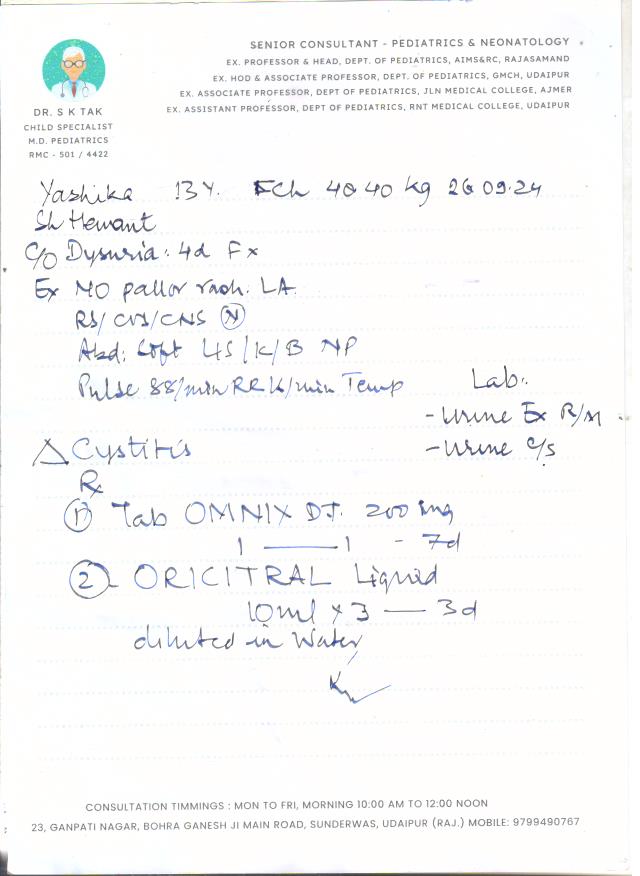 SENIOR CONSULTANT - PEDIATRICS & NEONATOLOGY
EX. PROFESSOR & HEAD, DEPT. OF PEDIATRICS, AIMS&RC, RAJASAMAND
EX. HOD & ASSOCIATE PROFESSOR, DEPT. OF PEDIATRICS, GMCH, UDAIPUR
EX. ASSOCIATE PROFESSOR, DEPT OF PEDIATRICS, JLN MEDICAL COLLEGE, AJMER
EX. ASSISTANT PROFESSOR, DEPT OF PEDIATRICS, RNT MEDICAL COLLEGE, UDAIPUR
DR. S K TAK
CHILD SPECIALIST
M.D. PEDIATRICS
RMC - 501 / 4422
Yashika 13 Y. FCh 40 40 kg 26 09.24
Sh Hemant
C/O Dysuria: 4d Fx
Ex NO pallor rash. LA
RS/ CVS/CNS (N)
Abd: Soft LS/K/B NP
Pulse 88/min RR /min Temp
Lab:
- Urine Ex R/M
- Urine C/S
△ Cystitis
Rx
① Tab OMNIX DT. 200 mg
1 —— 1 - 7d
② - ORICITRAL Liquid
10ml x 3 — 3d
diluted in Water
CONSULTATION TIMMINGS : MON TO FRI, MORNING 10:00 AM TO 12:00 NOON
23, GANPATI NAGAR, BOHRA GANESH JI MAIN ROAD, SUNDERWAS, UDAIPUR (RAJ.) MOBILE: 9799490767